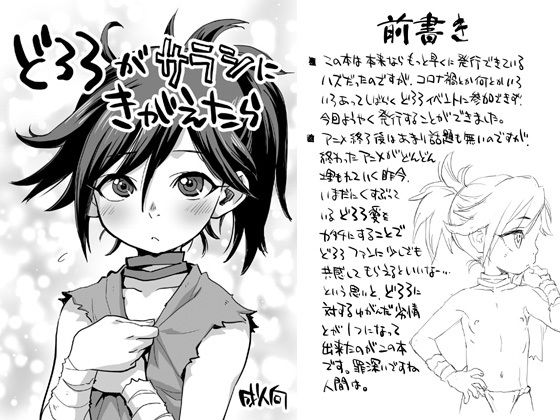 どろろがサラシに
きがえたら
成人向
前書き
この本は本来ならもっと早くに発行できている
ハズだったのですが、コロナ禍とか何とかいろ
いろあってしばらくどろろイベントに参加できず!
今日ようやく発行することができました。
アニメ終了後はあまり話題も無いのですが!
終わったアニメがどんどん
埋もれていく昨今、
いまだにくすぶって
いるどろろ愛を
カタチにすることで
どろろファンに少しでも
共感してもらえるといいなー…
という思いと、どろろに
対するゆがんだ劣情
とが1つになって
出来たのがこの本
です。罪深いですね
人間は。